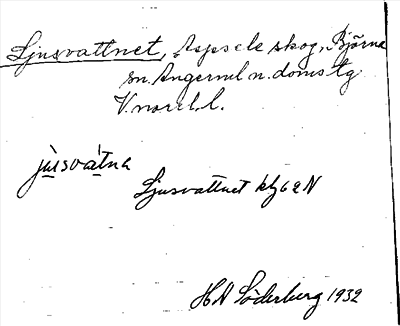 Ljusvattnet, Aspsele skog, Björna
sn. Ångerml n. doms tg
V.norrl. l.
jusvatna
Ljusvattnet kbl 62N
H A Söderberg 1932